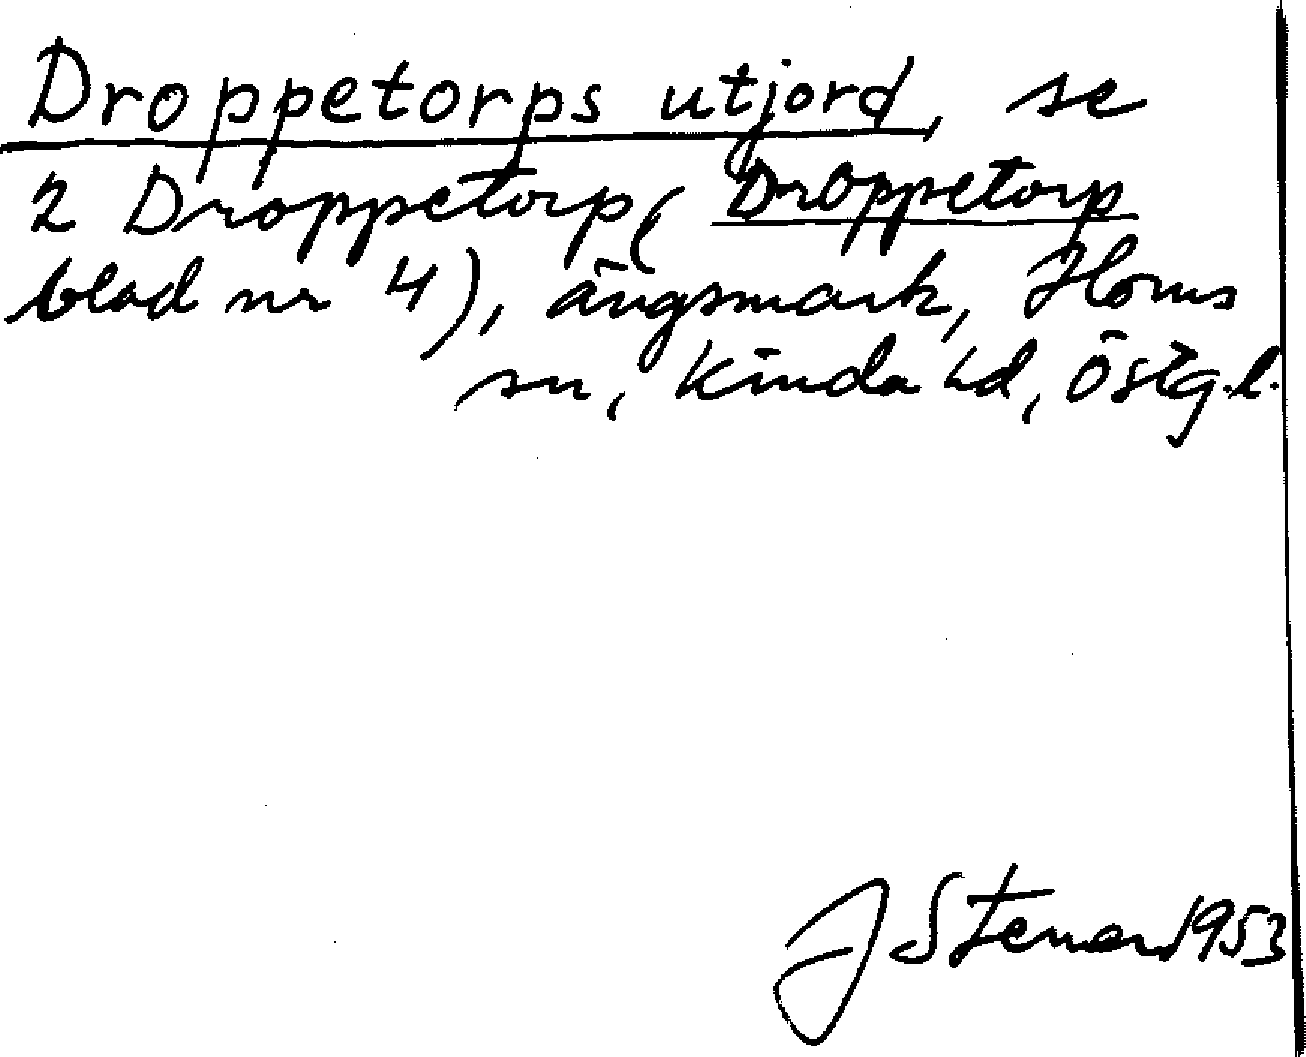 Droppetorps utjord, se
2 Droppetorp (Droppetorp
blad nr 4), ängsmark, Horns
sn, Kinda hd, Östg.l.
J Stenor 1953